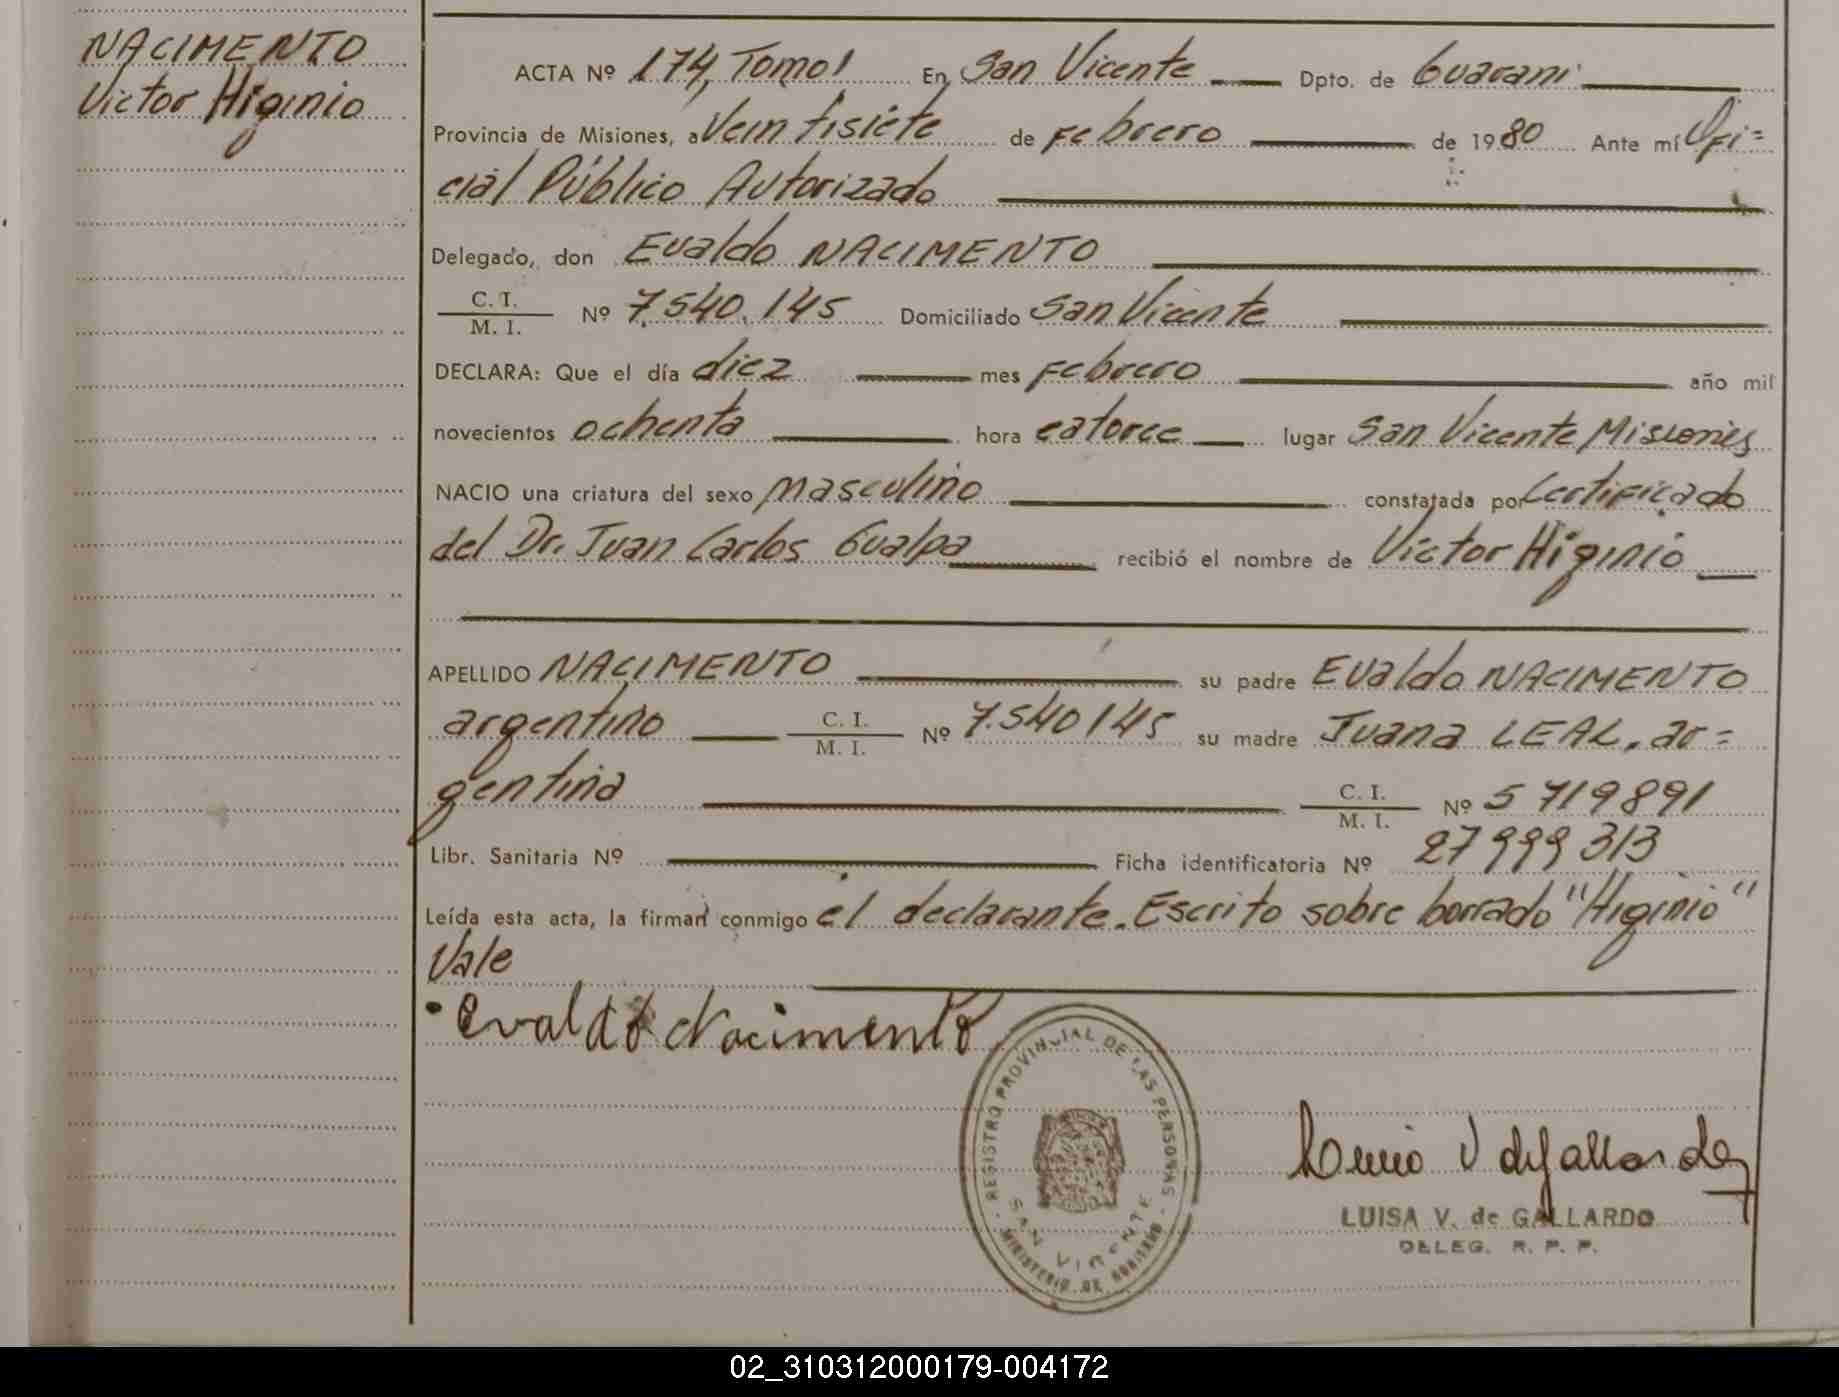 NACIMENTO
Victor Higinio
ACTA Nº 174, Tomo 1 En San Vicente Dpto. de Guarani
Provincia de Misiones, a Veintisiete de Febrero de 1980 Ante mí Ofi=
cial Público Autorizado
Delegado, don Evaldo NACIMENTO
C. I.
M. I. Nº 7.540.145 Domiciliado San Vicente
DECLARA: Que el día diez mes Febrero año mil
novecientos ochenta hora catorce lugar San Vicente Misiones
NACIO una criatura del sexo masculino constatada por Certificado
del Dr. Juan Carlos Gualpa recibió el nombre de Victor Higinio
APELLIDO NACIMENTO su padre Evaldo NACIMENTO
argentino C. I.
M. I. Nº 7.540145 su madre Juana LEAL, ar=
gentina C. I.
M. I. Nº 5719891
Libr. Sanitaria Nº Ficha identificatoria Nº 27999313
Leída esta acta, la firman conmigo el declarante. Escrito sobre borrado "Higinio"
Vale
Evaldo Nacimento
REGISTRO PROVINCIAL DE LAS PERSONAS
SAN VICENTE
MINISTERIO DE GOBIERNO
LUISA V. de GALLARDO
DELEG. R. P. P.
02_310312000179-004172